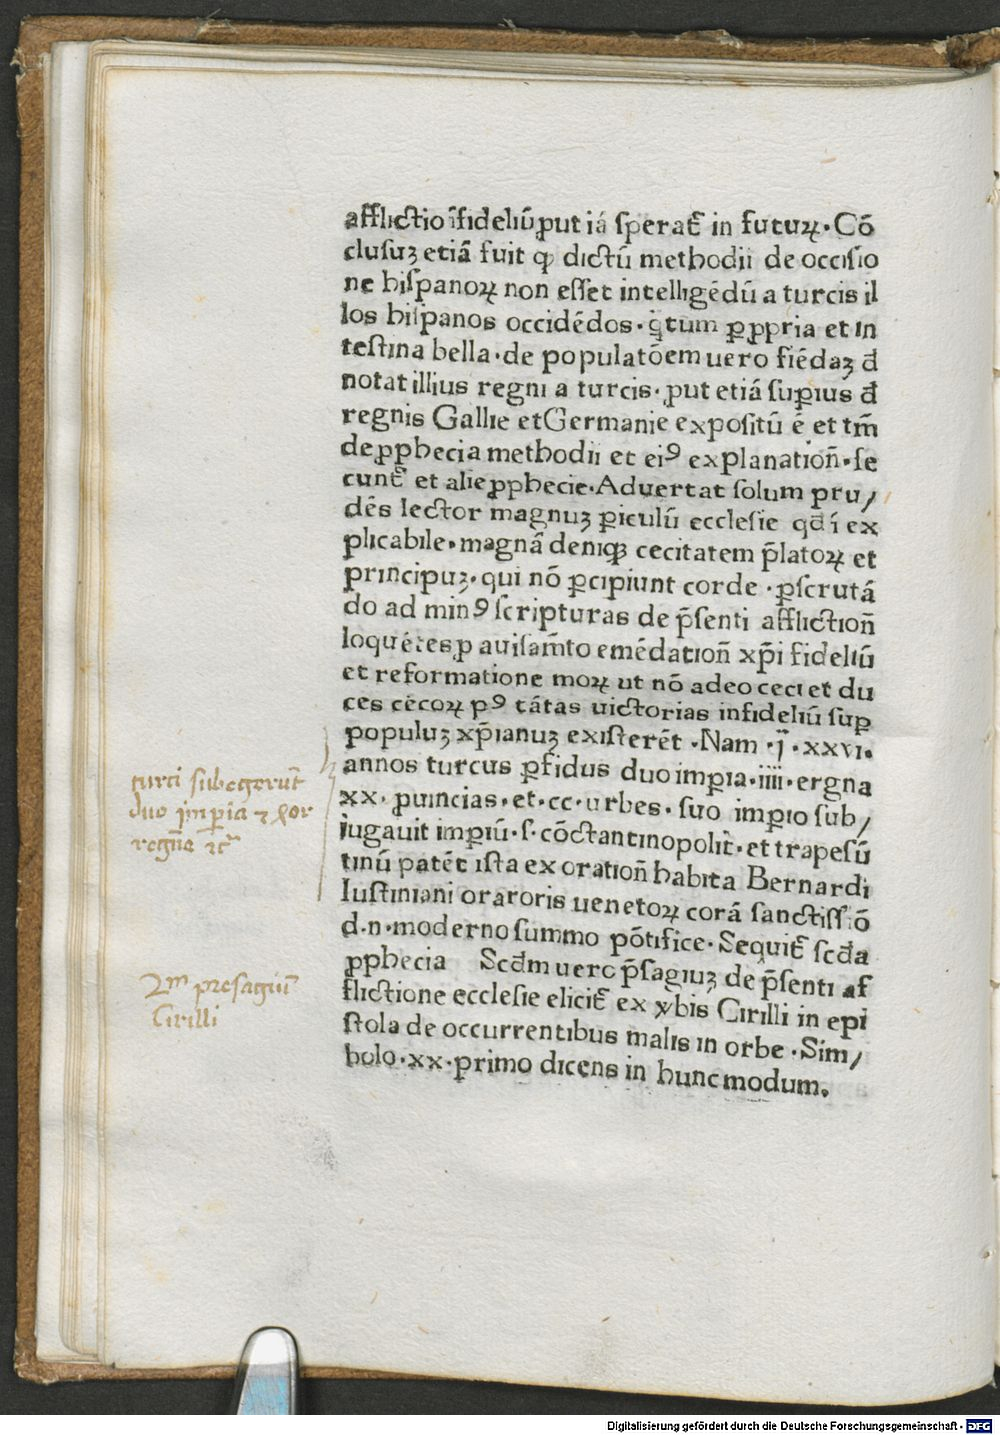 afflictio ĩfideliũ ꝓut iã ſperat᷑ in futuꝝ. Cõ
cluſuꝫ etiã fuit ꝙ dictũ methodii de occiſio
ne hiſpanoꝝ non eſſet intelligẽdũ a turcis il
los hiſpanos occidẽdos. q̃tum ꝑ ꝓpria et in
teſtina bella. de populatõem uero fiẽdaꝫ đ
notat illius regni a turcis. ꝓut etiã ſuꝑius đ
regnis Gallie et Germanie expoſitũ ẽ et tm̃
de ꝓphecia methodii et eiꝰ explanatioñ. ſe
cunt᷑ et alie ꝓphecie. Advertat ſolum pru/
dẽs lector magnuꝫ ꝑiculũ eccleſie qđ ĩ ex
plicabile. magnã deniqꝫ cecitatem p̃latoꝝ et
principuꝫ. qui nõ ꝑcipiunt corde. ꝑſcrutã
do ad minꝰ ſcripturas de p̃ſenti afflictioñ
loquẽtes ꝓ auiſam̃to emẽdatioñ xp̃i fideliũ
et reformatione moꝝ ut nõ adeo ceci et du
ces cecoꝝ pꝰ tãtas uictorias infideliũ ſuꝑ
populuꝫ xp̃ianuꝫ exiſterẽt. Nam .ĵ. xxvi.
annos turcus ꝑfidus duo imꝑia. iiii. ergna
xx. ꝓuincias. et. cc. urbes. ſuo imꝑio ſub/
iugauit imꝑiũ. ſ. cõctantinopolit̃. et trapeſũ
tinũ patẽt iſta ex oratioñ habita Bernardi
Iuſtiniani oraroris uenetoꝝ corã ſanctiſſĩo
d. n. moderno ſummo põtifice. Sequit᷑ ſcđa
ꝓphecia Scđm uero p̃ſagiuꝫ de p̃ſenti af
flictione eccleſie elicit᷑ ex ỽbis Cirilli in epi
ſtola de occurrentibus malis in orbe. Sim/
bolo. xx. primo dicens in hunc modum.
turci ſubegerũt
duo imꝑia
regña ⁊c̃
2m preſagiũ
Cirilli
Digitalisierung gefördert durch die Deutsche Forschungsgemeinschaft - DFG